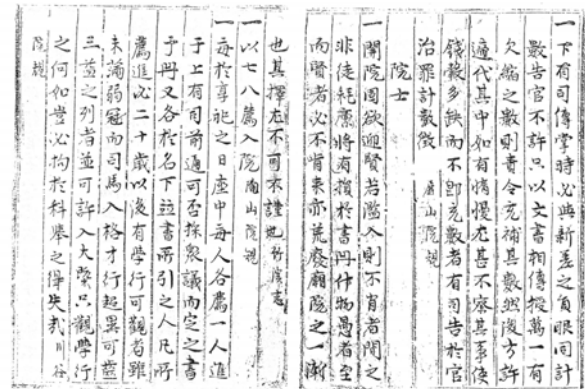 一下有司傳掌時必與新差之負眼同計
數告官不許只以文書相傳授萬一有
欠縮之數則責令充補其數然後方許
遞代其中如有惰慢尤甚不察其事使
錢穀多缺而不卽充數者有司告於官
治罪計數徵 屛山院規
院士
一開院固欲迎賢若濫入則不肖者間之
非徒耗廩將有損於書冊什物愚者至
而賢者必不肯來亦荒廢廟院之一漸
也其擇尤不可不謹也 
一以七八薦入院 陶山院規
一每於享祀之日座中每人各薦一人進
于上有司前通可否採衆議而定之書
于冊又各於名下並書所引之人凡所
薦進必二十歲以後有學行可觀者雖
未滿弱冠而司馬入格才行超異可
三益之列者並可許入大槩只觀學行
之何如豈必拘於科擧之得失哉
院規